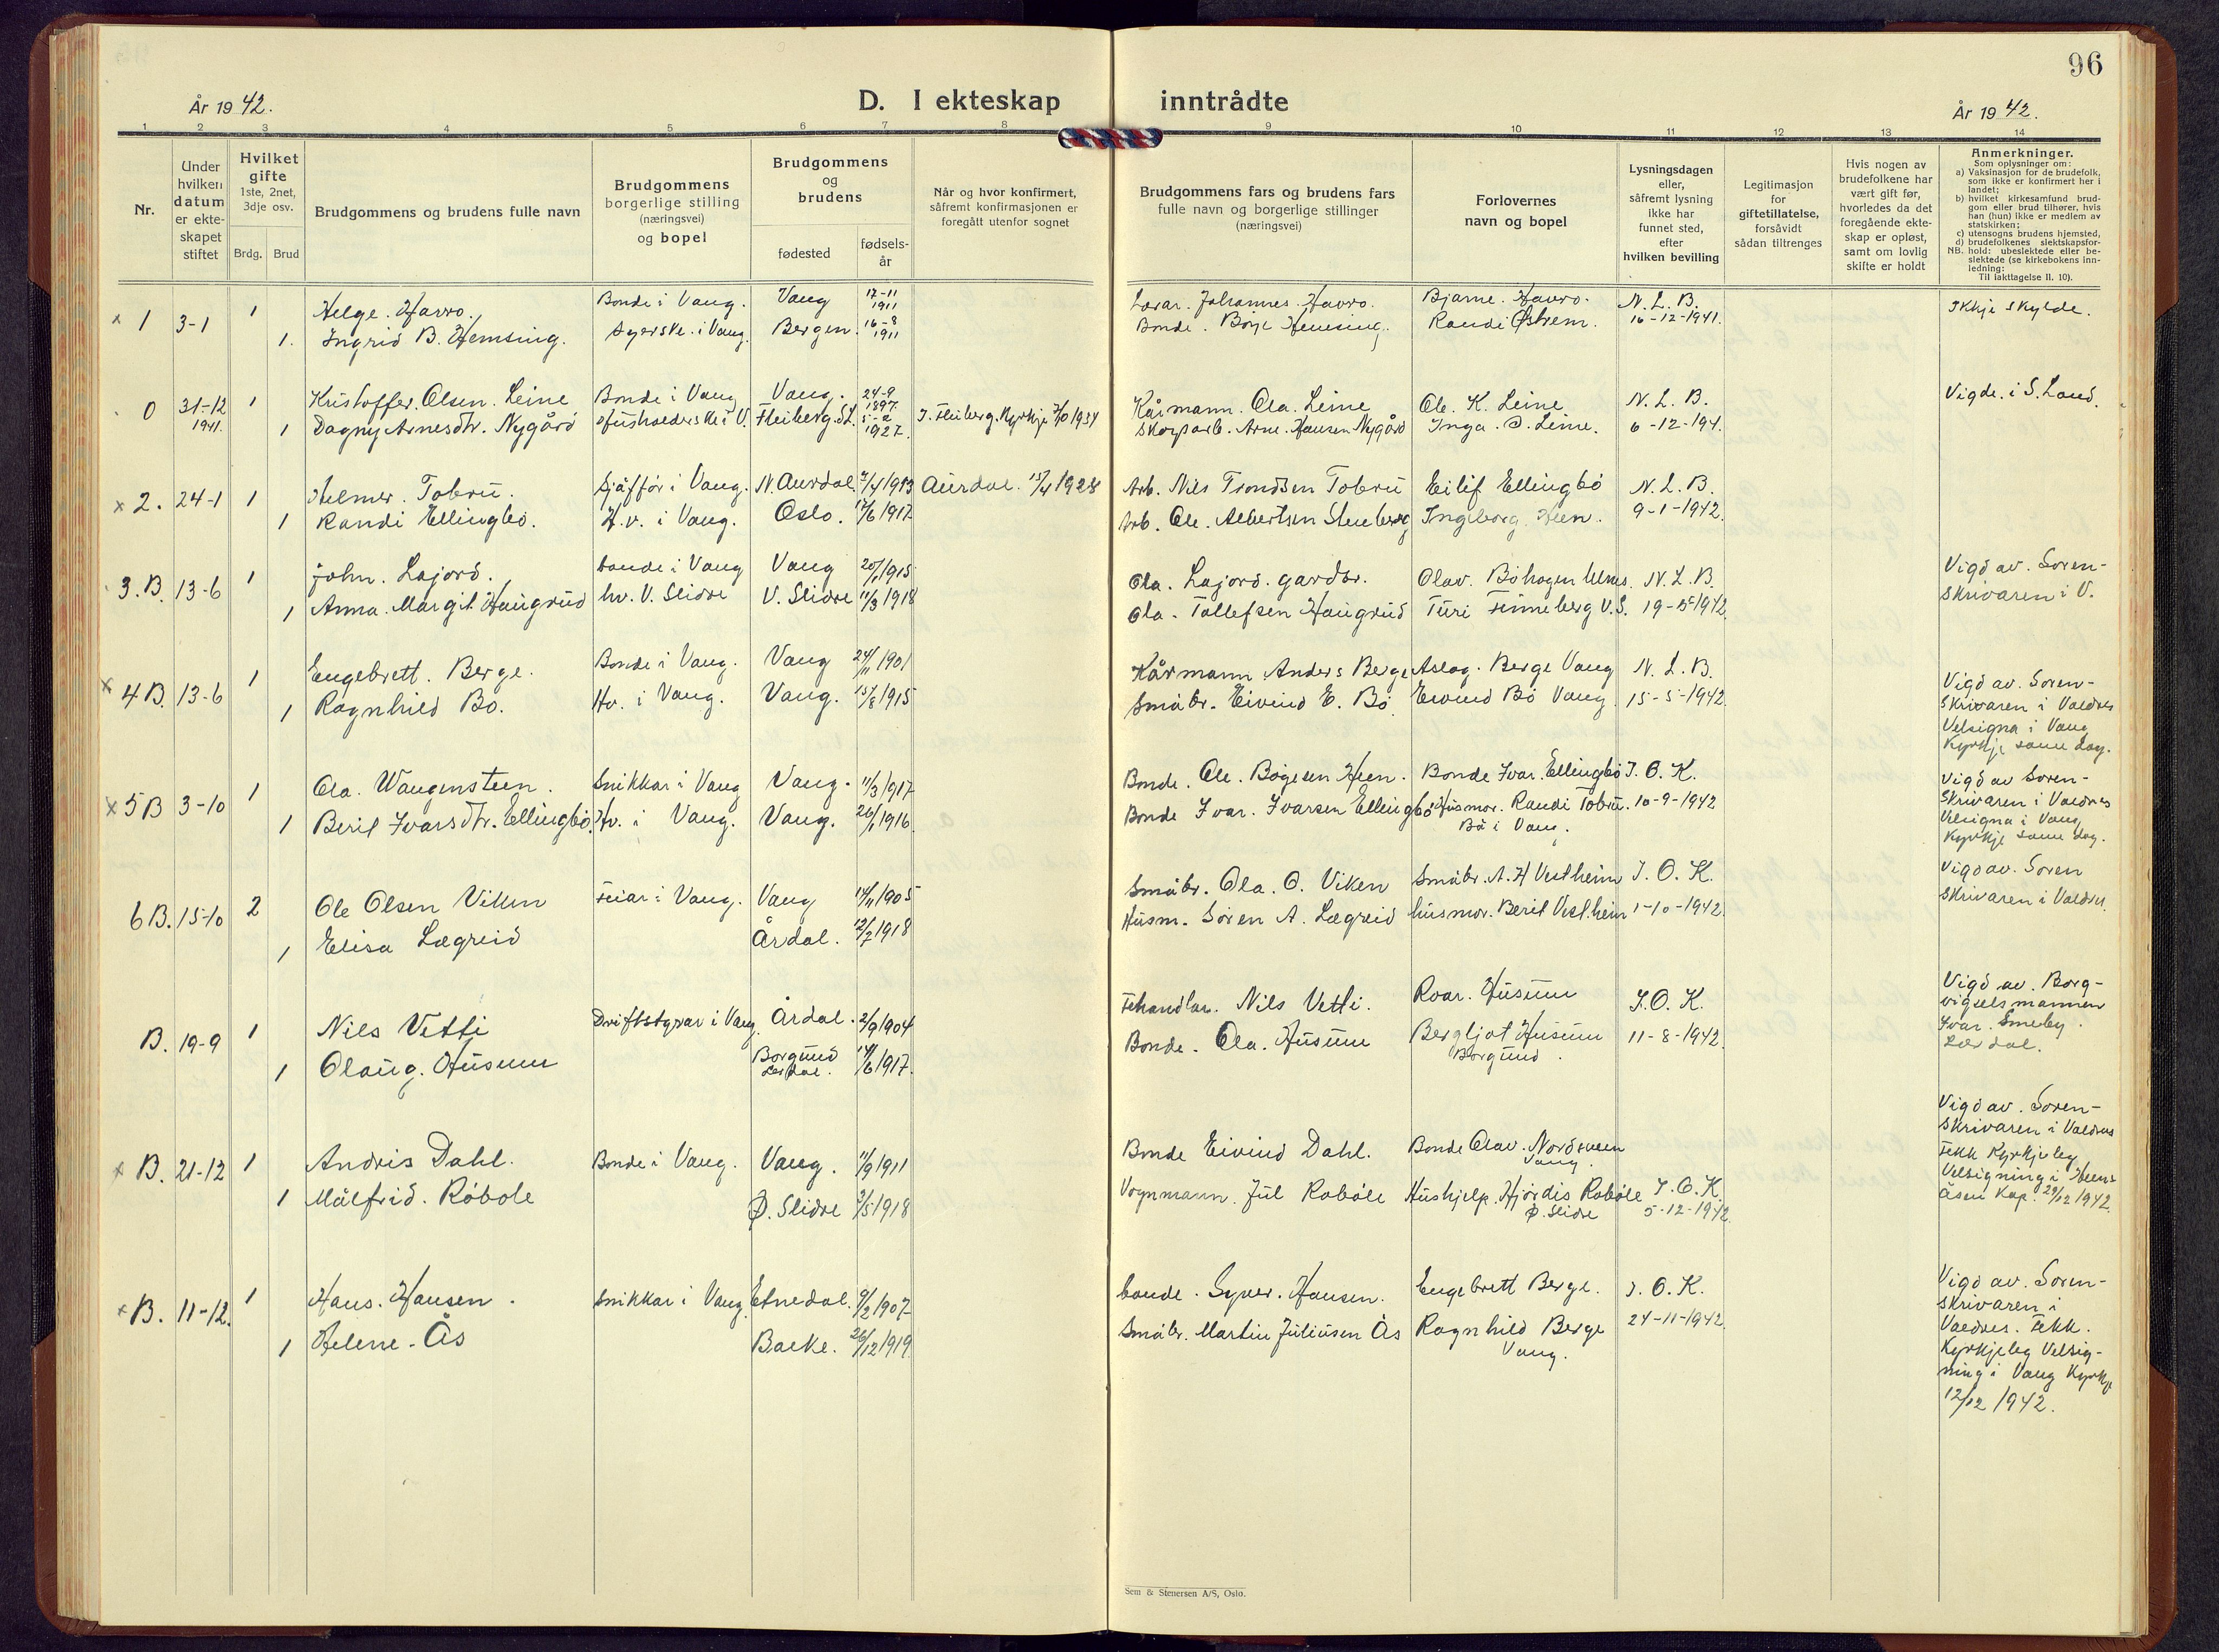 96
År 1942.
D. I ekteskap inntrådte
År 1942.
1 2 3 4 5 6 7 8 9 10 11 12 13 14
Nr.
Under hvilken datum er ekteskapet stiftet
Hvilket gifte
1ste, 2net, 3dje osv.
Brdg. Brud
Brudgommens og brudens fulle navn
Brudgommens borgerlige stilling (næringsvei) og bopel
Brudgommens og brudens
fødested
fødsels-år
Når og hvor konfirmert, såfremt konfirmasjonen er foregått utenfor sognet
Brudgommens fars og brudens fars
fulle navn og borgerlige stillinger
(næringsvei)
Forlovernes navn og bopel
Lysningsdagen eller, såfremt lysning ikke har funnet sted, efter hvilken bevilling
Legitimasjon for giftetillatelse, forsåvidt sådan tiltrenges
Hvis nogen av brudefolkene har vært gift før, hvorledes da det foregående ekteskap er opløst, samt om lovlig skifte er holdt
Anmerkninger.
Som oplysninger om:
a) Vaksinasjon for de brudefolk, som ikke er konfirmert her i landet;
b) hvilket kirkesamfund brudgom eller brud tilhører, hvis han (hun) ikke er medlem av statskirken;
c) utensogns brudens hjemsted,
d) brudefolkenes slektskapsforhold:
NB. ubeslektede eller beslektede (se kirkebokens innledning:
Til iakttagelse II. 10).
x 1 3-1 1 Helge. Havro. Bonde i Vang. Vang 17-11 1911 Lærar. Johannes. Havro. Bjarne. Havro. N. L. B. Ikkje skylde.
1. Ingrid B. Hemsing. Syerske. i Vang. Bergen. 16-8 1911 Bonde. Børje Hemsing. Randi Østrem. 16-12-1941.
0 31-12 1941. 1 Kristoffer. Olsen. Leine Bonde i Vang Vang. 24-9 1897 Kårmann. Ola. Leine Ole. K. Leine. N. L. B. Vigde. i S. Land.
1 Dagny Arnesdtr. Nygård i V. 1927. Arne. Hansen Nygård Inga. O. Leine. 6-12-194.
x 2. 24-1 1 Helmer. Tobru. Sjåffør i Vang. N. Aurdal. 7/4 1913 Aurdal. 15/4 1928 Arb. Nils Trondsen Tobru Eilif Ellingbø N. L. B.
1 Randi Ellingbø. H.v. i Vang. Oslo. 17/6 1917 Arb. Ole. Albertsen Stenberg Ingeborg. Heen. 9-1-1942.
3. B. 13-6 1 John. Lajord. bonde i Vang Vang 20/1 1915 Ola. Lajord. gardbr. Olav. Bøhagen Ulnes N. L. B. Vigd av. Soren-
1 Anna. Margit. Haugrud hv. V. Slidre V. Slidre 11/3 1918 Ola. Tollefsen Haugrud Turi Finneberg V.S. 19-5-1942. skrivaren i V.
x 4 B. 13-6 1 Engebrett. Berge. Bonde i Vang. Vang 24/11 1901 Kårmann Anders Berge Aslag. Berge Vang N. L. B.
1 Ragnhild Bø. Hv. i Vang. Vang. 15/8 1915 Småbr. Eivind E. Bø Eivind Bø Vang 15-5-1942.
Vigd av. Soren-
skrivaren i Valdres
Velsigna i Vang
Kyrkje same dag.
x 5 B 3-10 1 Ola. Wangensteen. Snikkar i Vang Vang. 11/3 1917 Bonde. Ole. Bøgesen Heen. Bonde Ivar. Ellingbø I. O. K.
1 Beril Ivarsdtr. Ellingbø. Hv. i Vang. Vang. 26/1 1916 Bonde Ivar. Ivarsen Ellingbø Husmor. Randi Tobru. 10-9-1942
Bø i Vang.
Vigd av Soren-
skrivaren i Valdres
Velsigna i Vang
Kyrkje same dag.
6 B. 15-10 2 Ole Olsen Viken Feiar i Vang. Vang 14/11 1905 Småbr. Ola. O. Viken Småbr. A. H Vestheim I. O. K. Vigd av. Soren
1 Elisa Lægreid Årdal. 12/7 1918 Husm. Søren A. Lægreid husmor. Berit Vestheim 1-10-1942. skrivaren i Valdres.
B. 19-9 1 Nils Vetti Driftstyrar i Vang Årdal. 2/9 1904 Fehandlar. Nils Vetti. Roar. Husum I. O. K.
1 Olaug. Husum Borgund Lærdal. 14/6 1917. Bonde. Ola. Husum Bergljot Husum Borgund. 11-8-1942.
Vigd av. Borg-
vigselsmannen
Ivar. Smeby.
Lærdal.
x B. 21-12 1 Andris Dahl. Bonde i Vang. Vang. 11/9 1911 Bonde Eivind Dahl. Bonde Olav. Nordsveen Vang.
1 Målfrid. Robøle Ø. Slidre 3/5 1918 Vognmann. Jul Robøle Hushjelp. Hjørdis Robøle Ø. Slidre I. O. K. 5-12-1942.
Vigd av. Soren-
skrivaren i Valdres
Fekk Kyrkjeleg
Velsigning i Heens-
åsen Kap. 29/12 1942.
x B. 11-12. 1 Hans. Hansen. Snikkar i Vang Etnedal. 9/2 1907 bonde. Syver. Hansen. Engebrett Berge. I. O. K.
1 Helene. Ås Backe. 26/12 1919. Småbr. Martin Juliusen Ås Ragnhild Berge Vang. 24-11-1942.
Vigd av. Soren-
skrivaren i
Valdres. Fekk.
Kyrkjeleg Velsig-
ning i Vang Kyrkje
12/12 1942.
Sem & Stenersen A/S, Oslo.